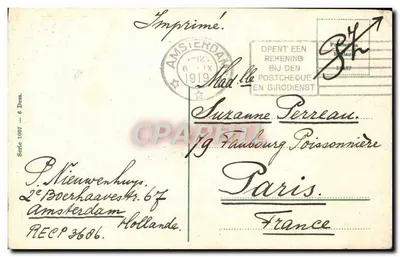 Imprimé.
AMSTERDAM
1919
OPENT EEN
REKENING
BIJ DEN
POSTCHEQUE
EN GIRODIENST
Mad^lle
Suzanne Perreau.
79 Faubourg Poissonnière
Paris.
France
P. Nieuwenhuys.
2e Boerhaavestr. 67
Amsterdam
Hollande.
RECP 3686.
Serie 1097 — 6 Dess.